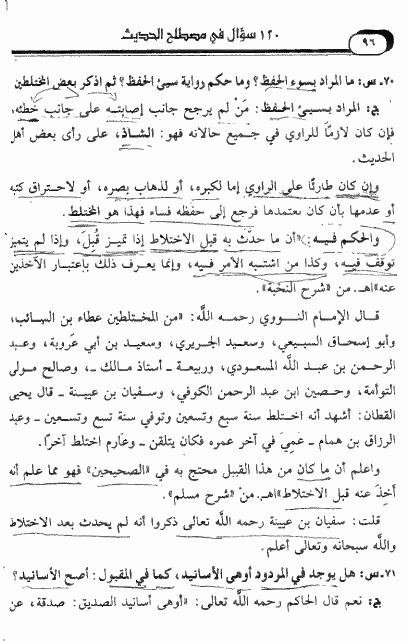 ١٢٠ سؤال في مصطلح الحديث
٩٦
٧٠ـ س: ما المراد بسوء الحفظ؟ وما حكم رواية سيئ الحفظ؟ ثم اذكر بعض المختلطين
ج: المراد بسيئ الحفظ: مَنْ لم يرجح جانب إصابته على جانب خطئه،
فإن كان لازمًا للراوي في جميع حالاته فهو: الشاذ، على رأى بعض أهل
الحديث.
وإن كان طارئًا على الراوي إما لكبره، أو لذهاب بصره، أو لاحتراق كتبه
أو عدمها بأن كان يعتمدها فرجع إلى حفظه فساء فهذا هو المختلط.
والحكم فيه: «أن ما حدّث به قبل الاختلاط إذا تميز قُبِلَ، وإذا لم يتميز
توقف فيه، وكذا من اشتبه الأمر فيه، وإنما يعرف ذلك بأعتبار الآخذين
عنه» اهـ. من «شرح النخبة».
قال الإمام النووي رحمه اللَّه: «من المختلطين عطاء بن السائب،
وأبو إسحاق السبيعي، وسعيد الجريري، وسعيد بن أبي عَروبة، وعبد
الرحمن بن عبد اللَّه المسعودي، وربيعة ـ أستاذ مالك ـ، وصالح مولى
التوأمة، وحصين ابن عبد الرحمن الكوفي، وسفيان بن عيينة ـ قال يحيى
القطان: أشهد أنه اختلط سنة سبع وتسعين وتوفي سنة تسع وتسعين ـ وعبد
الرزاق بن همام ـ عَمِيَ في آخر عمره فكان يتلقن ـ وعَارم اختلط آخرًا.
واعلم أن ما كان من هذا القبيل محتج به في «الصحيحين» فهو مما علم أنه
أُخِذَ عنه قبل الاختلاط» اهـ. من «شرح مسلم».
قلت: سفيان بن عيينة رحمه اللَّه تعالى ذكروا أنه لم يحدث بعد الاختلاط
واللَّه سبحانه وتعالى أعلم.
٧١ـ س: هل يوجد في المردود أوهى الأسانيد، كما في المقبول: أصح الأسانيد؟
ج: نعم قال الحاكم رحمه اللَّه تعالى: «أوهى أسانيد الصديق: صدقة، عن